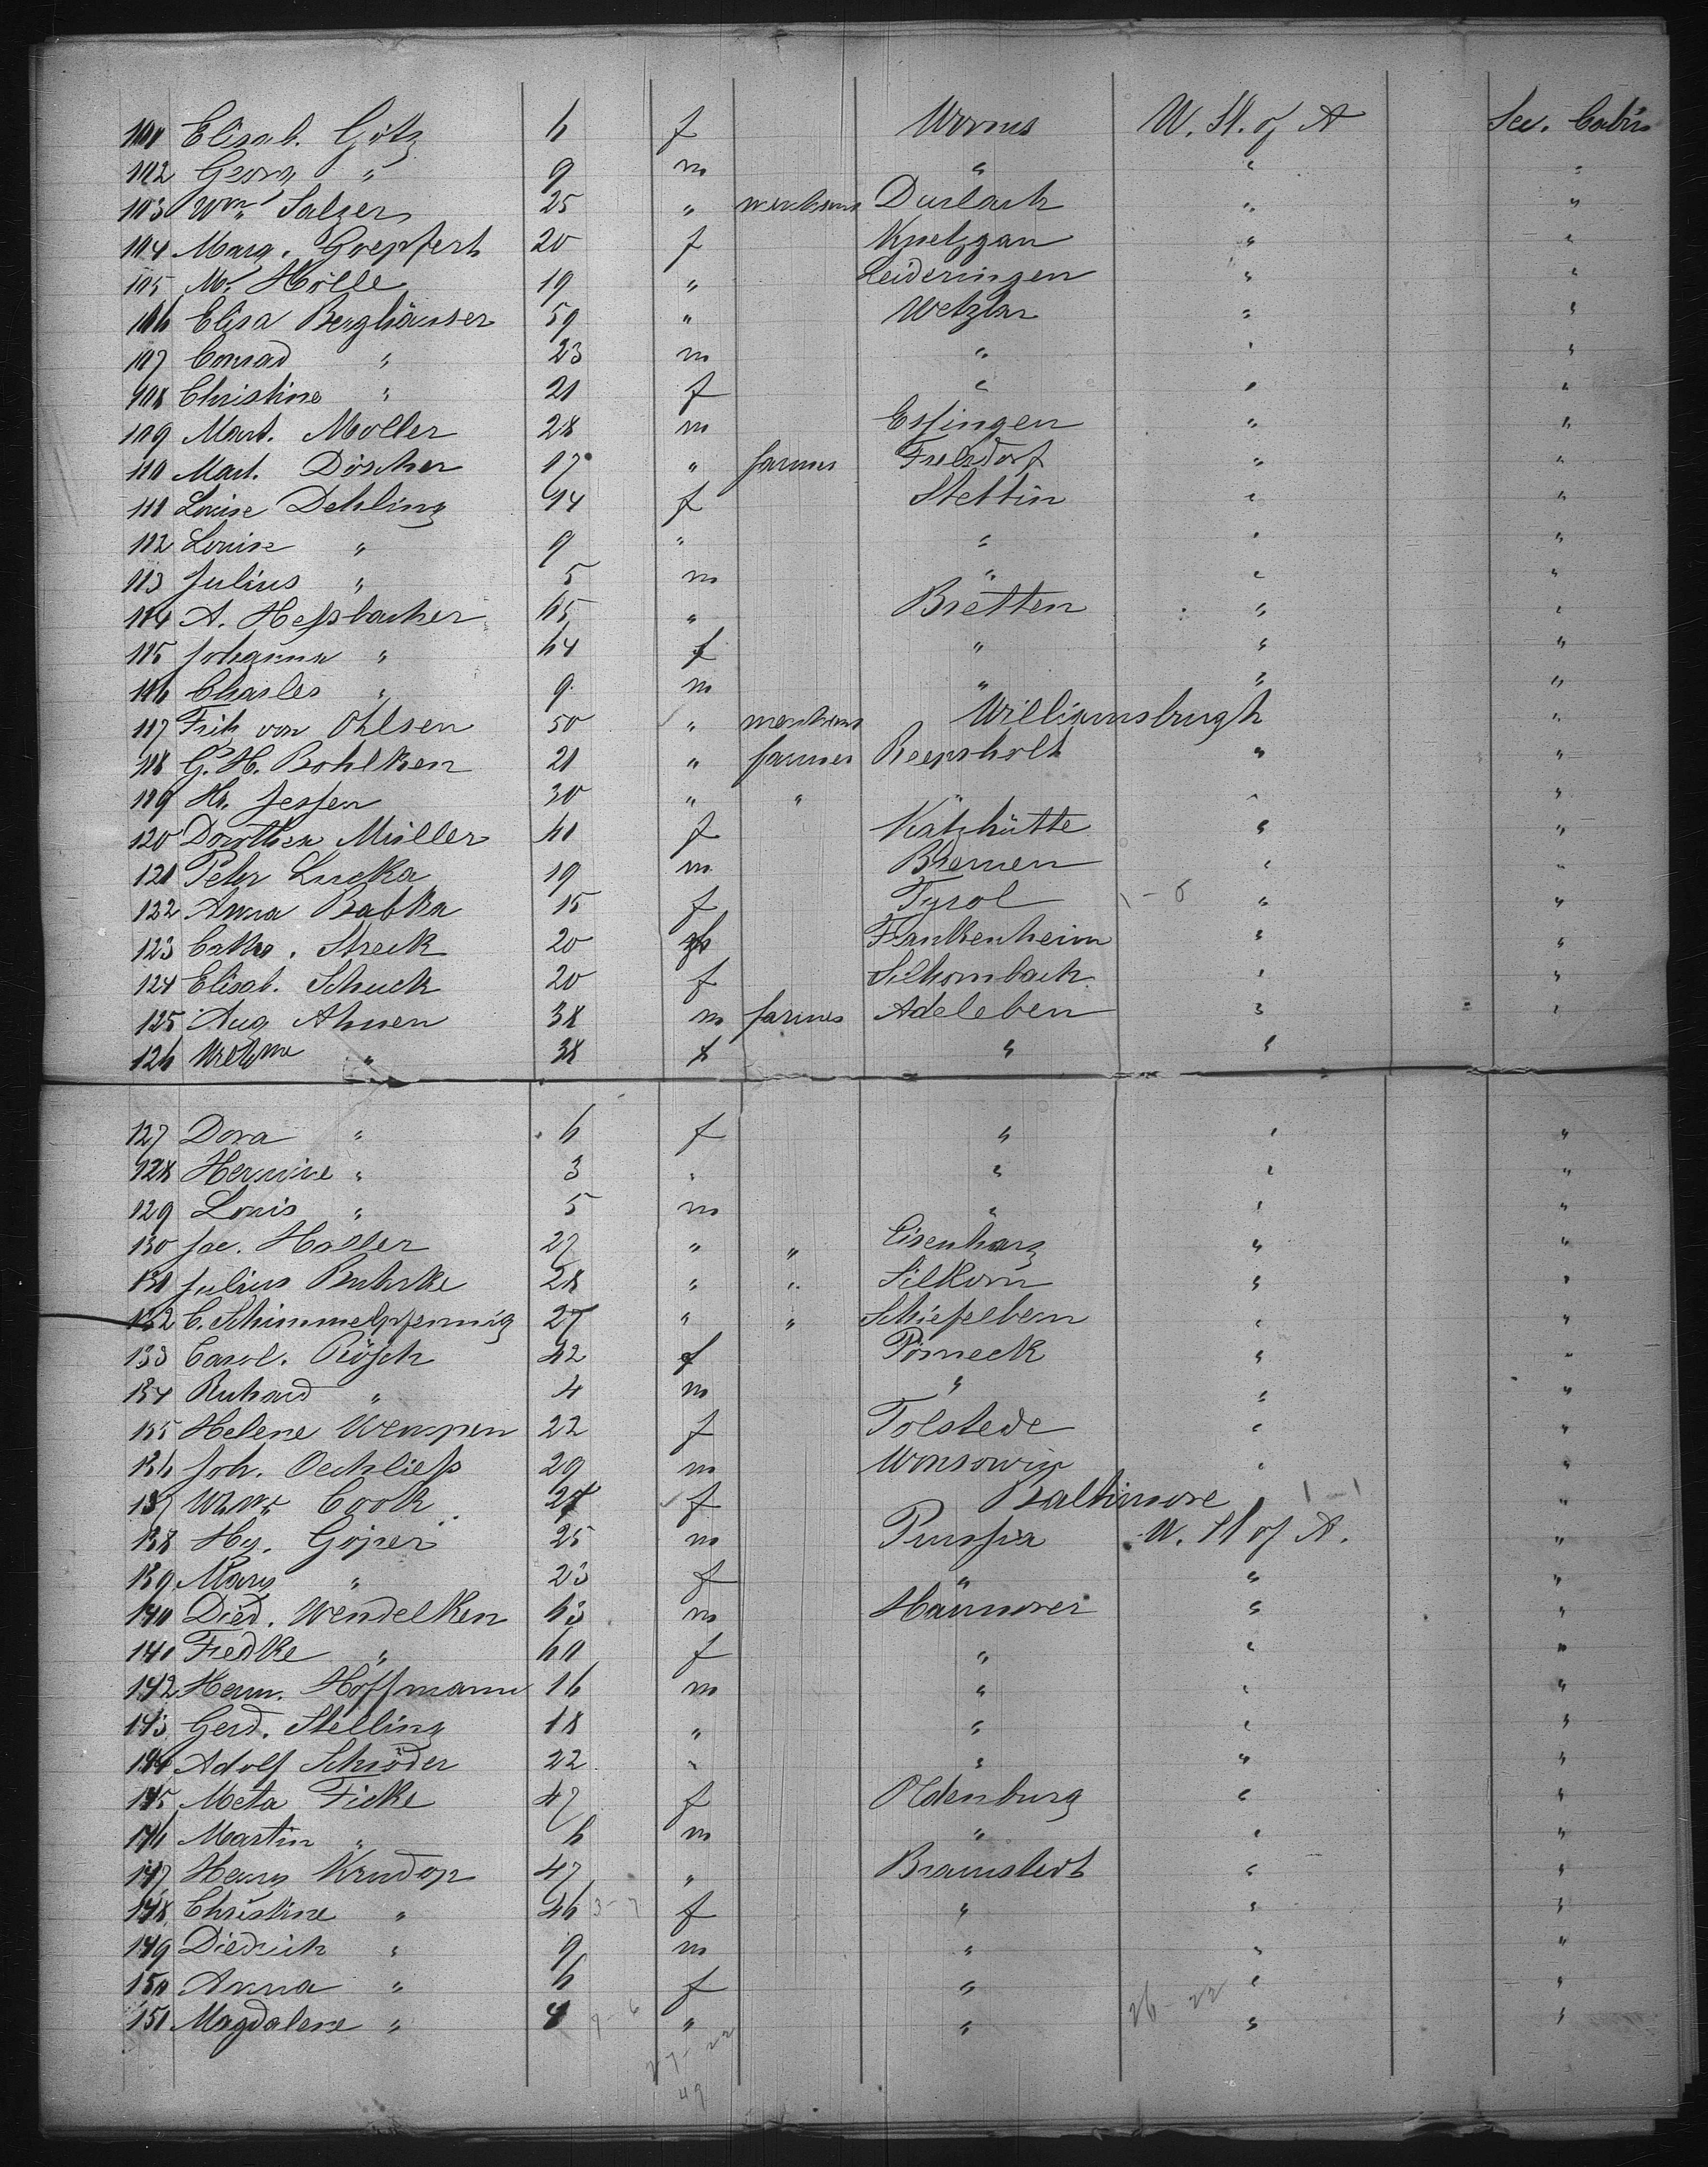 101 Elisab. Götz 6 f Worms U. St. of A Sec. Cabin
102 Georg " 9 m " " "
103 Wm. Salzer 25 " merchant Durlach " "
104 Marg. Goepfert 20 f Knetzgau " "
105 M. Hölle 19 " Leideringen " "
106 Elisa Berghäuser 59 " Wetzlar " "
107 Conrad " 23 m " " "
108 Christine " 21 f " " "
109 Mart. Moller 28 m Essingen " "
110 Mart. Döscher 17 " farmer Frelsdorf " "
111 Louise Dehling 44 f Stettin " "
112 Louise " 9 " " " "
113 Julius " 5 m " " "
114 A. Heßbacher 65 " Bretten " "
115 Johanna " 64 f " " "
116 Charles " 9 m " " "
117 Frih von Ohlsen 50 " merchant Williamsburgh "
118 G. H. Bohlken 21 " farmer Reepsholt " "
119 Hr. Jessen 30 " " " " "
120 Dorothea Müller 41 f Katzhütte " "
121 Peter Lucka 19 m Bremen " "
122 Anna Babka 15 f Tyrol 1-8 " "
123 Cath. Streck 20 f Frankenheim " "
124 Elisab. Schuck 20 f Schornbach " "
125 Aug Ahnen 38 m farmer Adeleben " "
126 " 38 f " " "
127 Dora " 6 f " " "
128 Hermine " 3 " " " "
129 Louis " 5 m " " "
130 Jac. Haller 27 " " Eisenharz " "
131 Julius 28 " " Silkow " "
132 C. Schimmelpfennig 27 " " Schiefelbein " "
133 Carol. Rösch 42 f Pörneck " "
134 Richard " 4 m " " "
135 Helene Wenspen 22 f Tolstede " "
136 Joh. Oechließ 29 m " "
137 Cook 27 f Baltimore 1-1 "
138 Hy. Göjer 25 m Prussia U. St of A. "
139 Mary " 23 f " " "
140 Died. Wendelken 63 m Hannover " "
141 Fredke " 60 f " " "
142 Herm. Hoffmann 16 m " " "
143 Gerd. Stelling 18 " " " "
144 Adolf Schröder 22 " " " "
145 Meta Ficke 47 f Oldenburg " "
146 Martin " 6 m " " "
147 Henry Krudop 47 " Bramstedt " "
148 Christine " 46 3-7 f " " "
149 Diedrich " 9 m " " "
150 Anna " 6 f " " "
151 Magdalene " 4 9-6 " " 26-22 " "
27-22
49